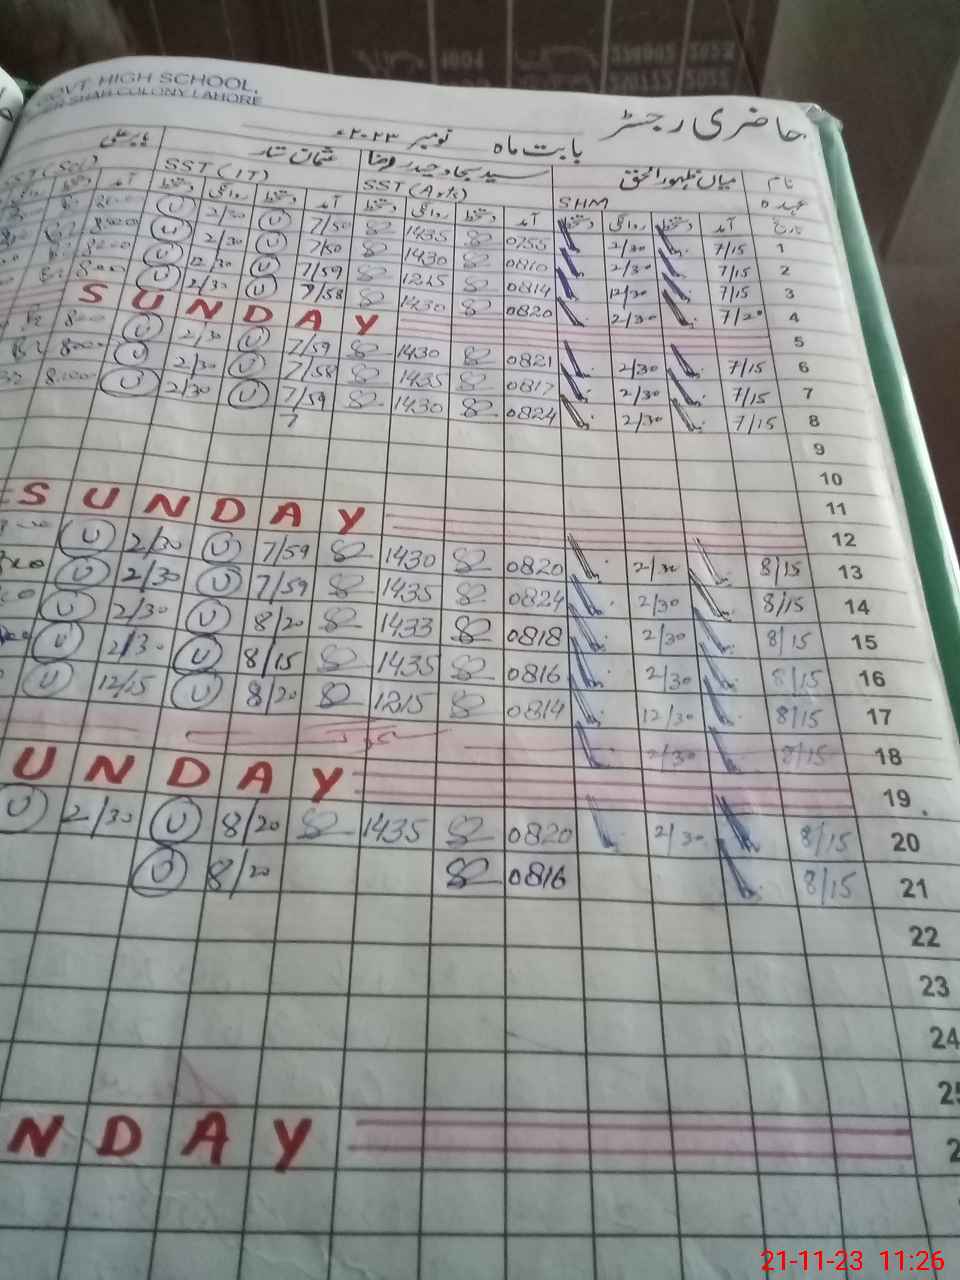 GOVT. HIGH SCHOOL,
SHAH COLONY LAHORE
حاضری رجسٹر
بابت ماہ نومبر ۲۰۲۳ء
نام میاں ظہور الحق سید سجاد حیدر رضا عثمان ستار بابر علی
عہدہ SHM SST (Arts) SST (IT) SST (Sci)
تاریخ آمد دستخط روانگی دستخط آمد دستخط روانگی دستخط آمد دستخط روانگی دستخط آمد
2/30 7/50 1435 0755 2/30 7/15 1
2/30 7/50 1430 0810 2/30 7/15 2
12/30 7/59 1215 0814 12/30 7/15 3
2/30 7/58 1430 0820 2/30 7/20 4
SUNDAY 5
2/30 7/59 1430 0821 2/30 7/15 6
2/30 7/58 1435 0817 2/30 7/15 7
2/30 7/59 1430 0824 2/30 7/15 8
7 9
10
11
SUNDAY 12
2/30 7/59 1430 0820 2/30 8/15 13
2/30 7/59 1435 0824 2/30 8/15 14
2/30 8/20 1433 0818 2/30 8/15 15
2/30 8/15 1435 0816 2/30 8/15 16
12/15 8/20 1215 0814 12/30 8/15 17
2/30 8/15 18
UNDAY 19
2/30 8/20 1435 0820 2/30 8/15 20
8/20 0816 8/15 21
22
23
24
25
NDAY 2
21-11-23 11:26